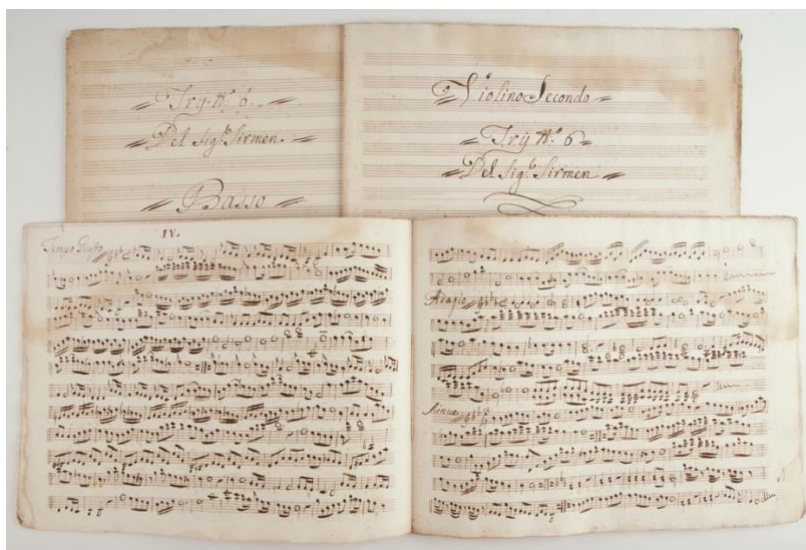 Try N.º 6.
Del Sig.º Sirmen.
Basso
Violino Secondo
Try N.º 6
Del Sig.º Sirmen
IV.
Tempo Giusto
Adagio
Minue